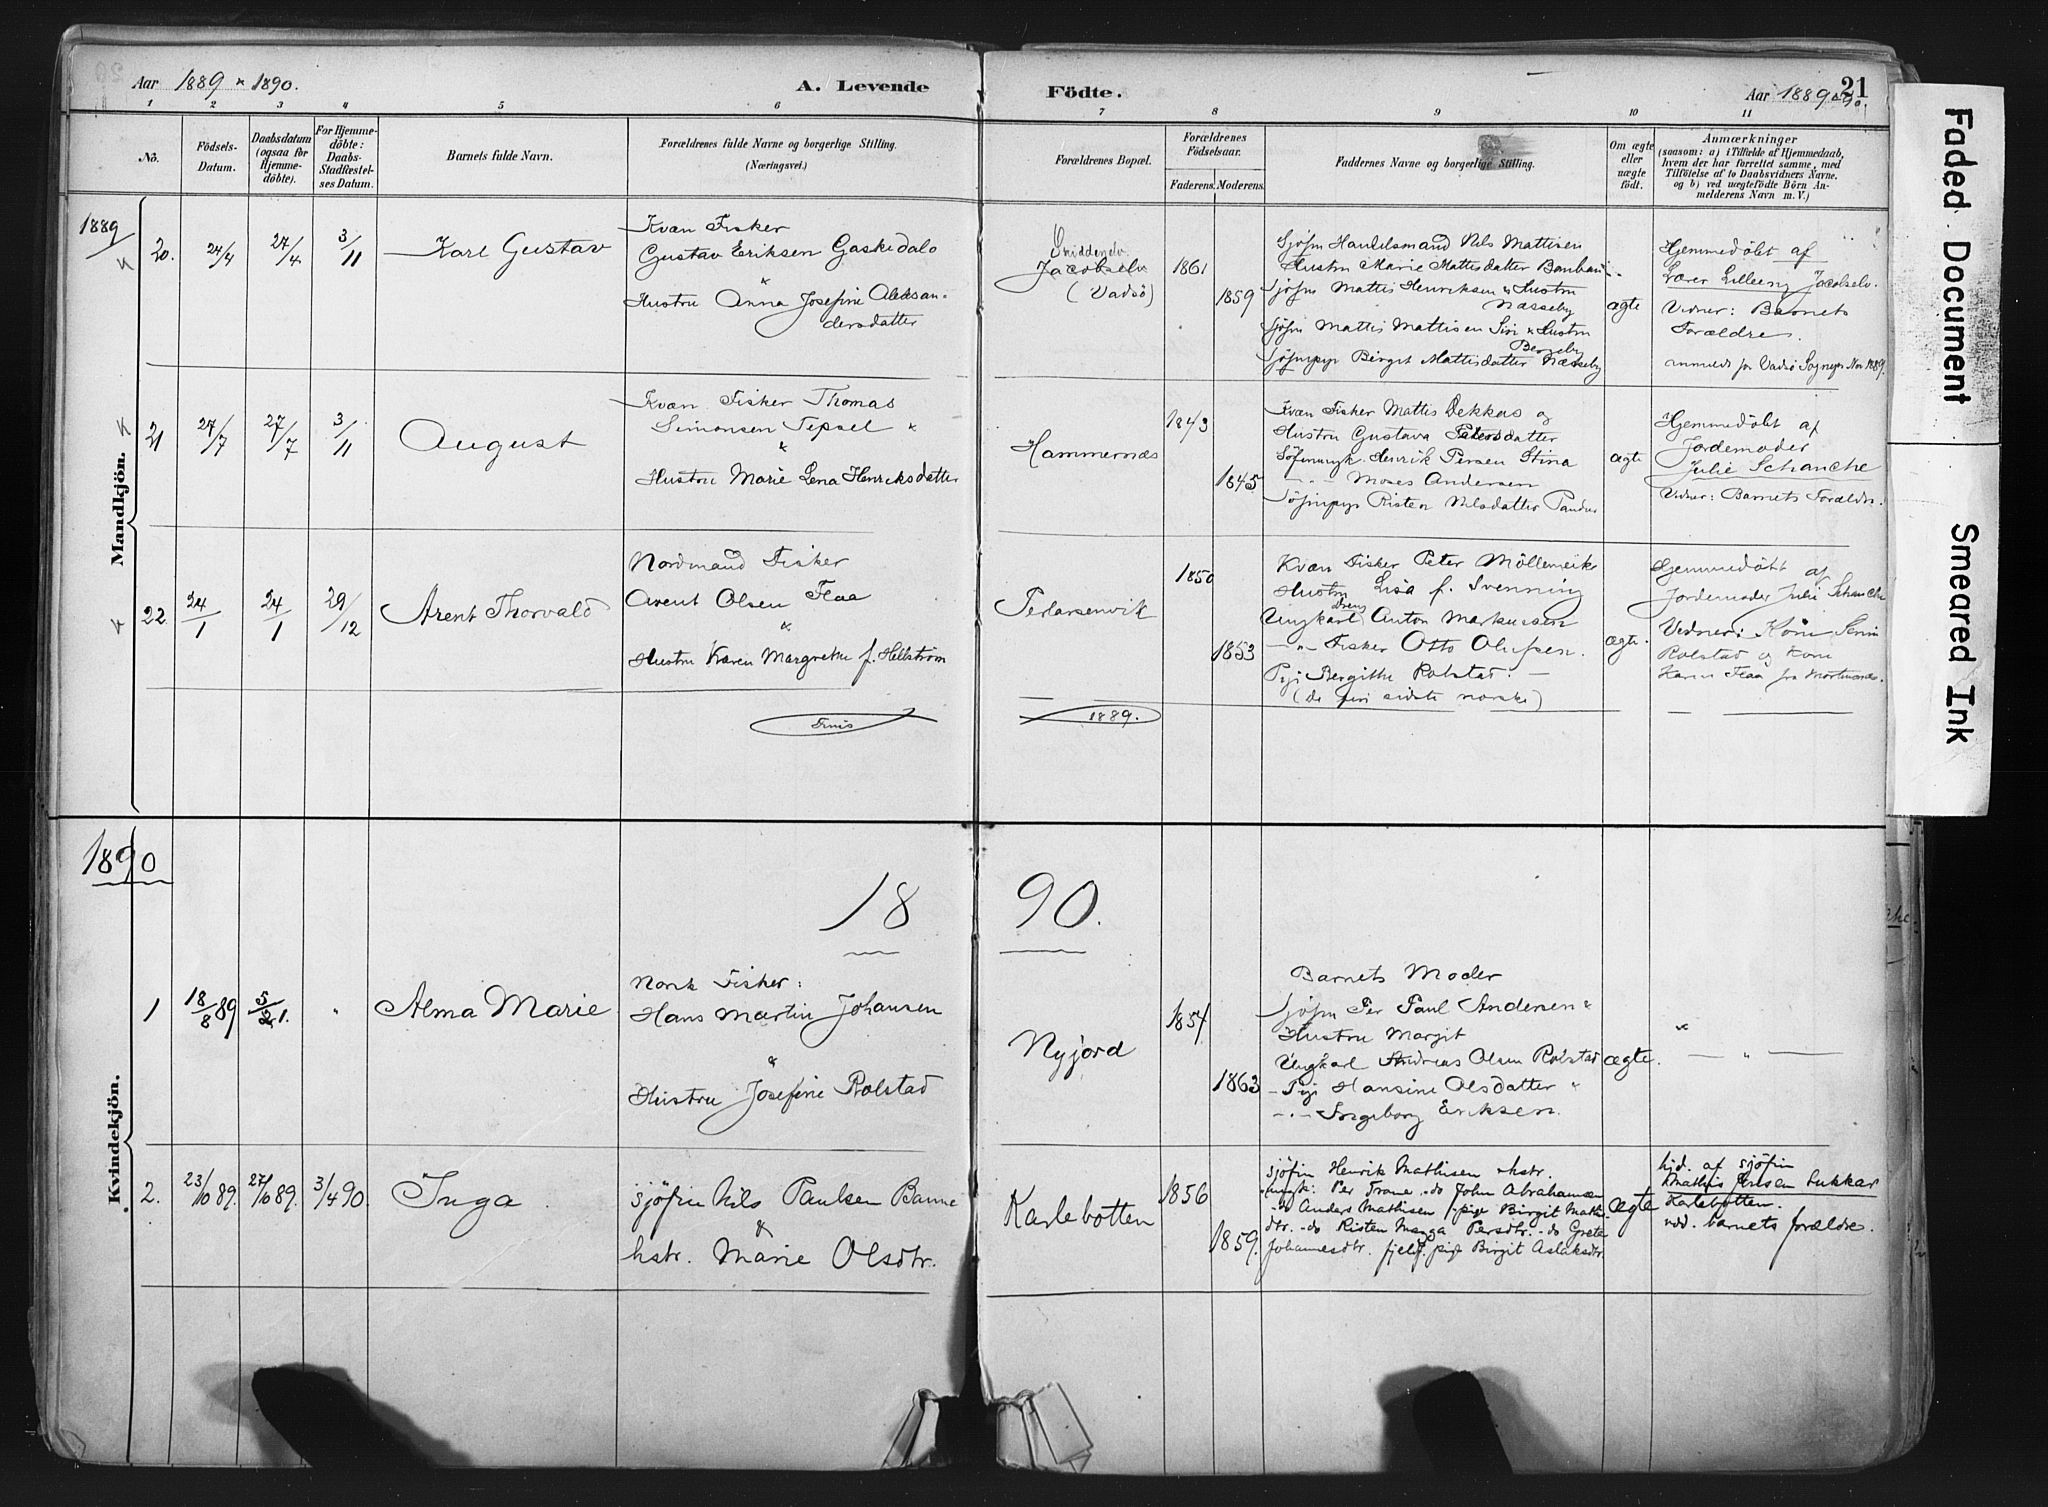 Aar 1889 & 1890.
A. Levende
Födte.
Aar 1889 & 90.
21
1 2 3 4 5 6 7 8 9 10 11
No.
Födsels-
Datum.
Daabsdatum
(ogsaa for
Hjemme-
döbte).
For Hjemme-
döbte:
Daabs-
Stadfæstel-
ses Datum.
Barnets fulde Navn.
Forældrenes fulde Navne og borgerlige Stilling.
(Næringsvei.)
Forældrenes Bopæl.
Forældrenes
Födselsaar.
Faderens. Moderens.
Faddernes Navne og borgerlige Stilling.
Om ægte
eller
uægte
födt.
Anmærkninger
(soasom: a) i Tilfælde af Hjemmedaab,
hvem der har forrettet samme, med
Tilföielse af to Daabsvidners Navne,
og b) ved uægtefödte Börn An-
melderens Navn m. V.)
1889
Mandkjön.
20.
24/4
27/4
3/11
Karl Gustav
Kvæn Fisker
Gustav Eriksen Gaskedalo
&
Hustru Anna Josefine Aleksan-
dersdatter
Jacobselv
(Vadsö)
1861
1859
Sjöfin Handelsmand Nils Mattisen
Hustru Marie Mattisdatter
Sjöfin Mattis Henriksen & Hustru
Næsseby
Sjöfin Mattis Mattisen Siri & Hustru
Sjöfinpige Birgit Mattisdatter Næsseby
ægte
Hjemmedöbt af
Lærer Lilleeng Jacobselv.
Vidner: Barnets
Forældre.
anmeldt fra Vadsö Sognepr. Nov 1889.
21
27/7
27/7
3/11
August
Kvæn Fisker Thomas
Simonsen Tepsel
&
Hustru Marie Lena Henriksdatter
Hammernæs
1843
1845
Kvæn Fisker Mattis Dekkas og
Hustru Gustava Petersdatter
Söfinungk. Henrik Persen Stina
- " - Moses Andersen
Söfinpige Risten Nilsdatter
ægte
Hjemmedöbt af
Jordemoder
Julie Schanche
Vidner: Barnets Forældre.
22
24/1
24/1
29/12
Arent Thorvald
Nordmand Fisker
Arent Olsen Flaa
&
Hustru Karen Margrethe f. Hellström
Perlarsenvik
1850
1853
Kvæn Fisker Peter
Hustru Lisa f. Svenning
dreng
Ungkarl Anton Markussen
- " - Fisker Otto Olufsen.
Pige Bergithe Rolstad: -
(de siste norske)
ægte.
Hjemmedöbt af
Jordemoder Julie Schanche
Vidner: Kone
Rolstad og Kone
Karen Flaa fra Mortensnæs.
Finis
1889.
1890
18
90.
Kvindekjön.
1
18/8 89
5/1.
"
Alma Marie
Norsk Fisker:
Hans Martin Johansen
&
Hustru Josefine Rolstad
Nyjord
1854
1863
Barnets Moder
Sjöfin Per Paul Andersen &
Hustru Margit
Ungkarl Andreas Olsen Rolstad
- Pige Hansine Olsdatter "
- " - Ingeborg Eriksen.
ægte.
— " —
2.
23/10 89.
27/10 89.
3/4 90.
Inga
sjöfin Nils Paulsen Banne
&
hstr. Marie Olsdtr.
Karlebotten
1856
1859.
sjöfin Henrik Mathisen & hstr.
ungk: Per Trane. do John Abrahamsen
- do Anders Mathisen - pige Birgit Mathis-
dtr. - do Risten Magga Persdtr. - do Grete
Johannesdtr. fjelf. pige Birgit Aslaksdtr.
ægte
hjd. af sjöfin
Mathis Jensen Lukkar
Karlebotten.
vid. barnets forældre.
Faded Document
Smeared Ink